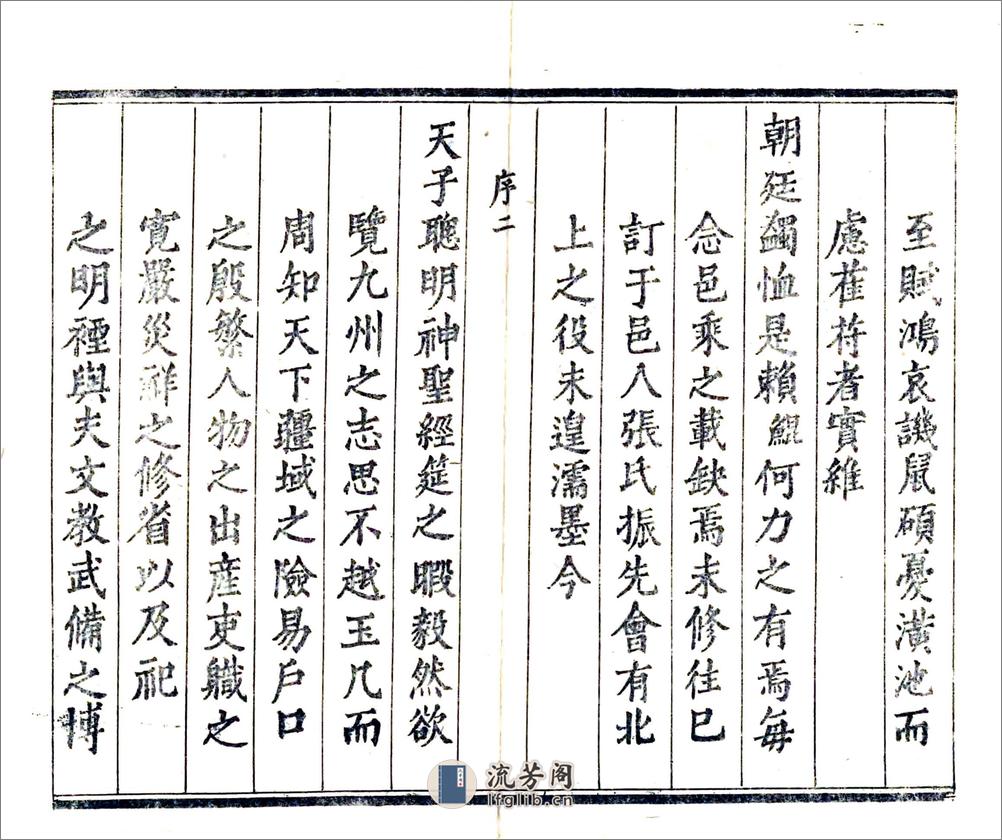 至賦鴻哀譏鼠碩憂潢池而
慮萑苻者實維
朝廷蠲恤是賴鯤何力之有焉每
念邑乘之載缺焉未修往巳
訂于邑人張氏振先會有北
上之役未遑濡墨今
序二
天子聰明神聖經筵之暇毅然欲
覽九州之志思不越玉几而
周知天下疆域之險易戶口
之殷繁人物之出產吏職之
寬嚴災祥之修省以及祀
之明禋與夫文教武備之博
流芳阁
lfglib.cn